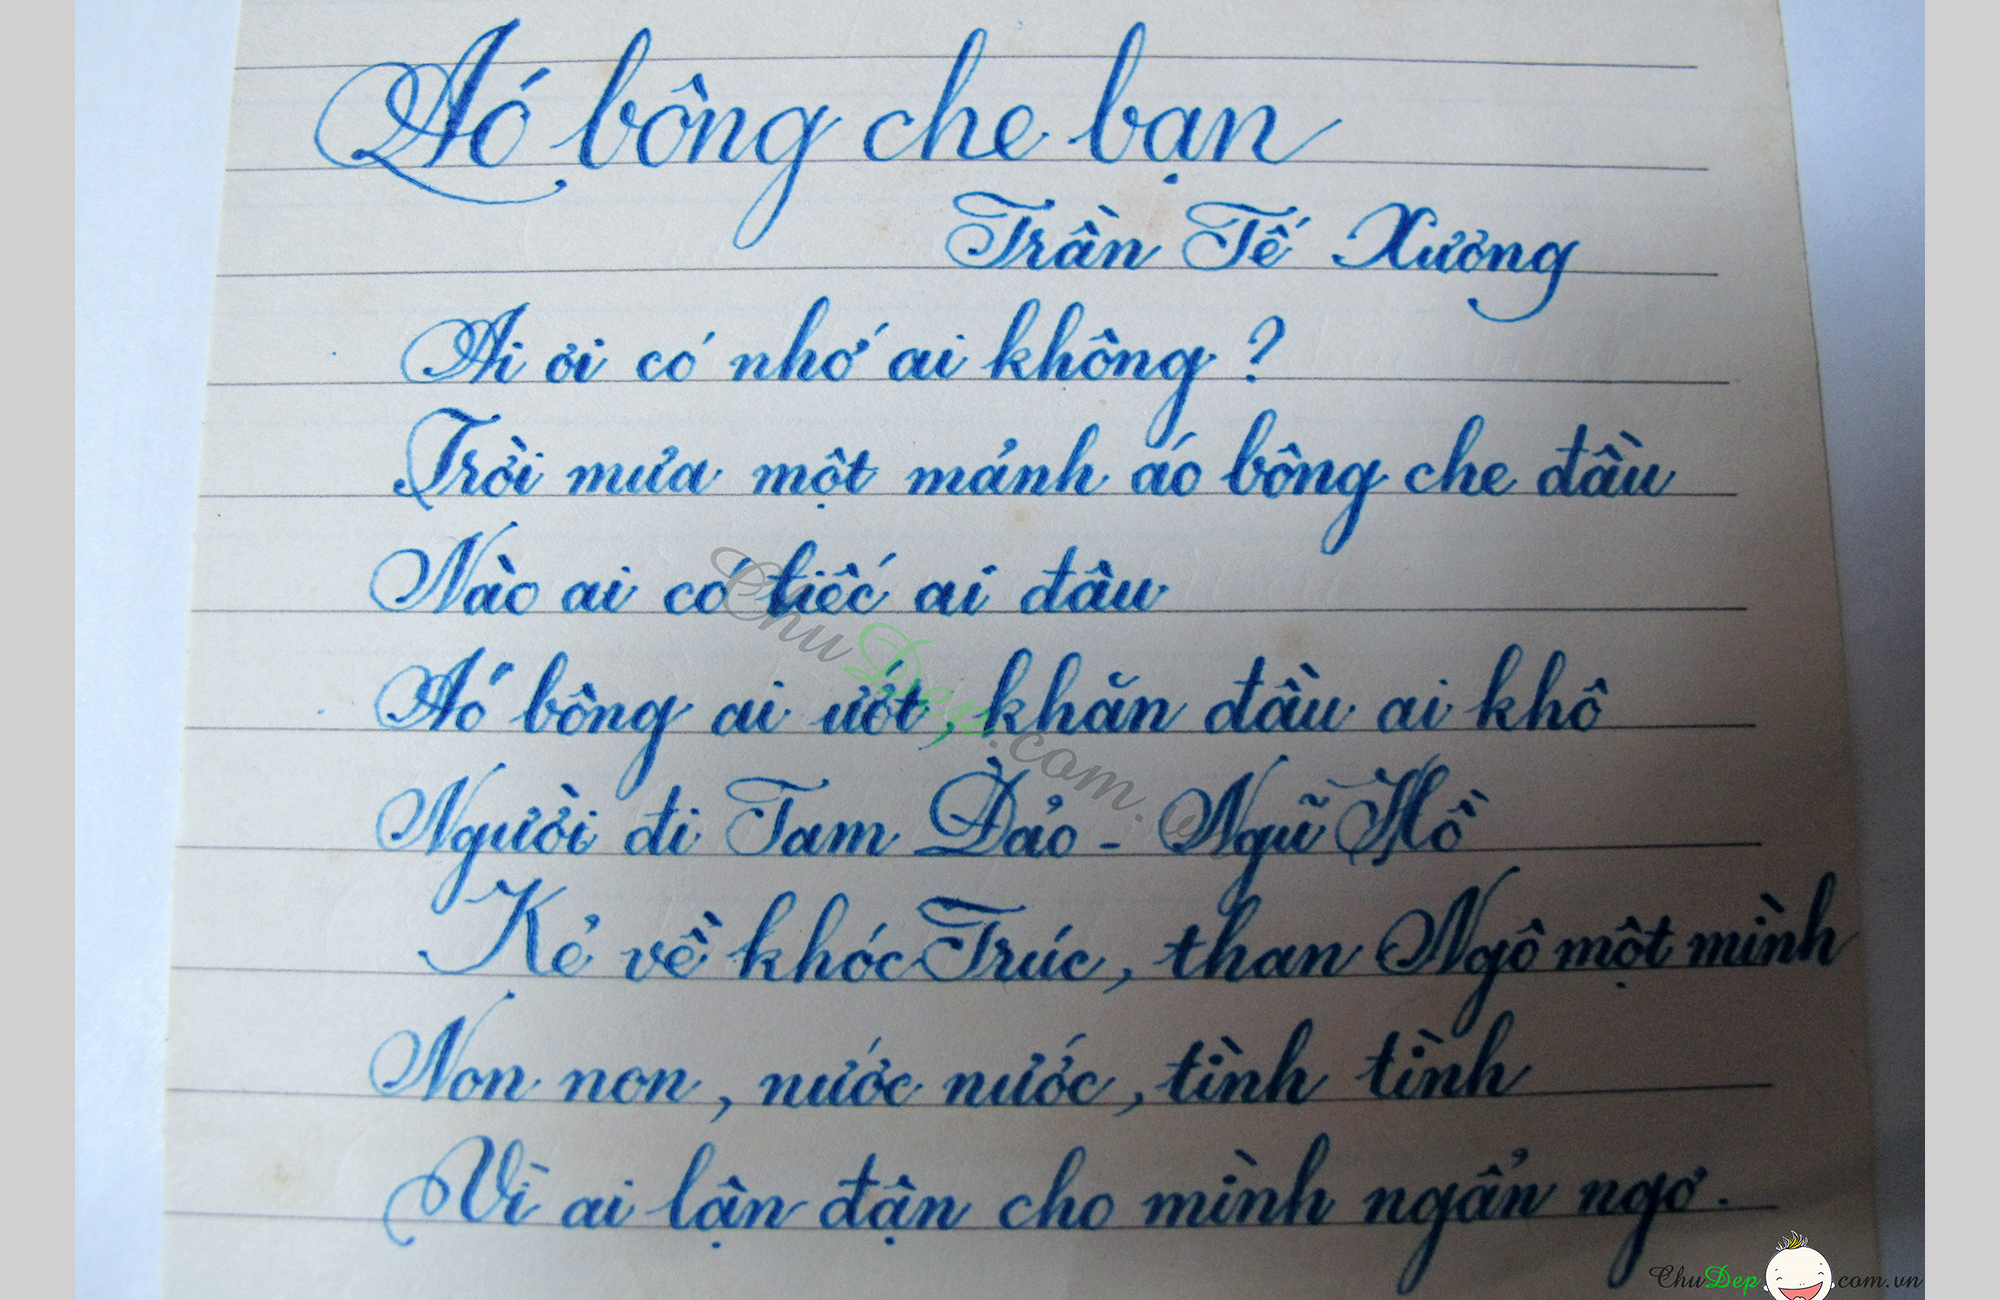 Aó bông che bạn
Trần Tế Xương
Ai ơi có nhớ ai không ?
Trời mưa một mảnh áo bông che đầu
Nào ai có tiếc ai đâu
Aó bông ai ướt, khăn đầu ai khô
Người đi Tam Đảo - Ngũ Hồ
Kẻ về khóc Trúc, than Ngô một mình
Non non, nước nước, tình tình
Vì ai lận đận cho mình ngẩn ngơ.
ChuDep.com.vn
ChuDep.com.vn